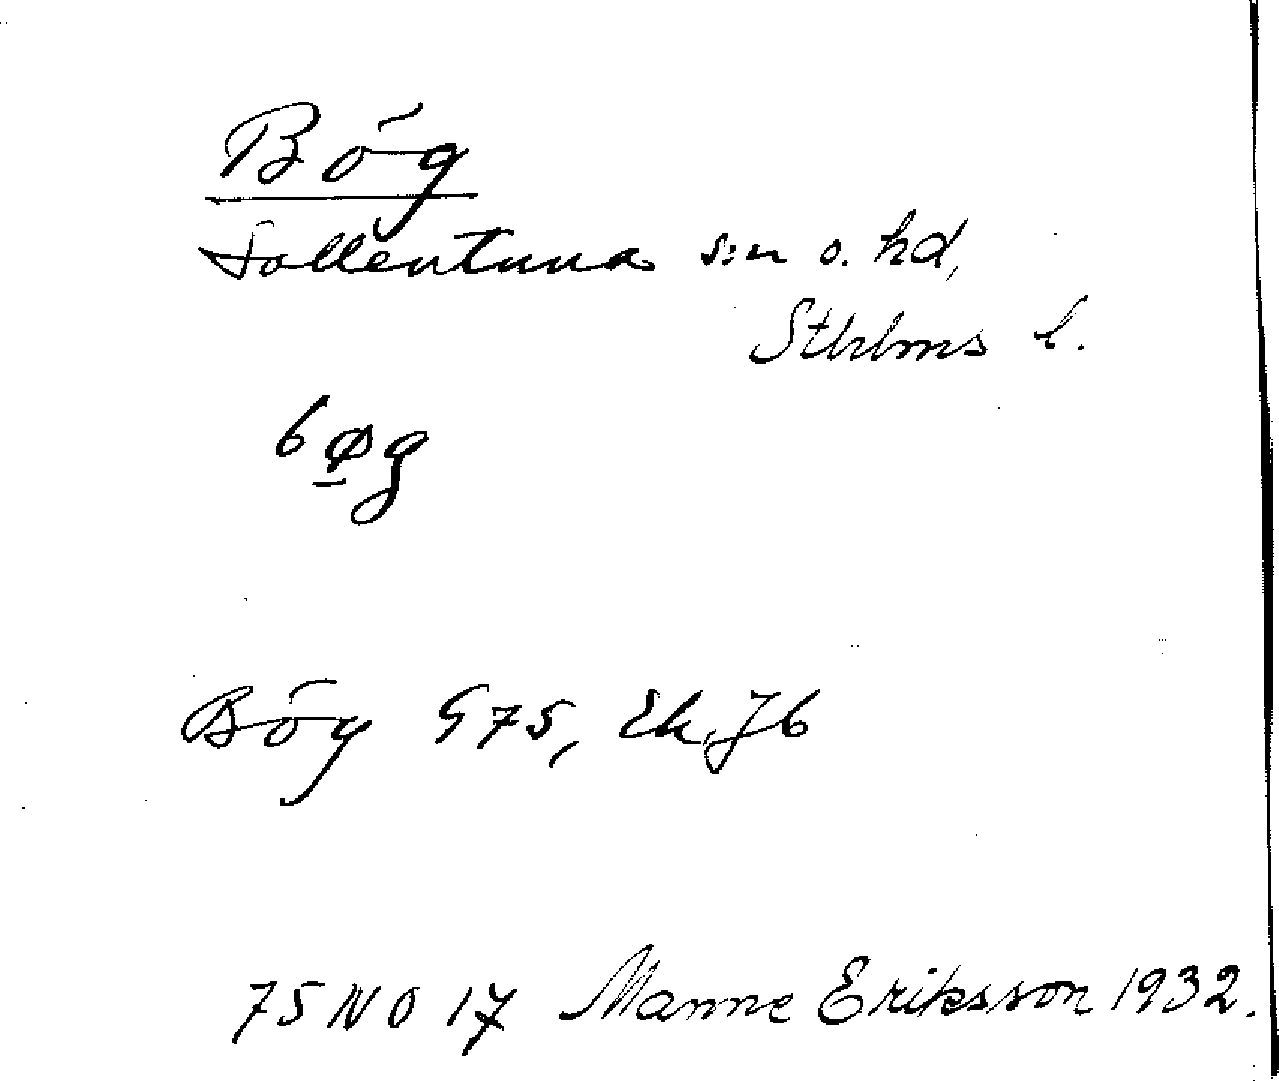 Bög
Sollentuna s:n o. hd,
Sthlms l.
bø̱g
Bög G 75, Ek, Jb
75 NO 17 Manne Eriksson 1932.